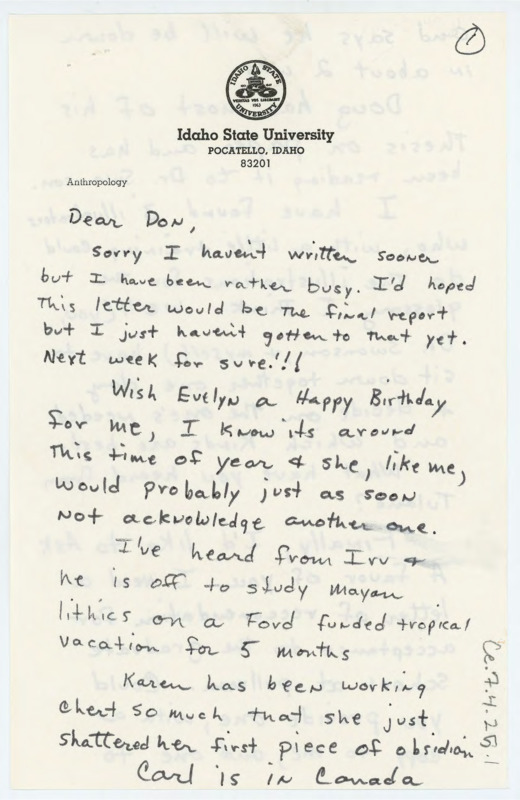 1
IDAHO STATE UNIVERSITY
Idaho State University
POCATELLO, IDAHO
83201
Anthropology
Dear Don,
Sorry I haven't written sooner
but I have been rather busy. I'd hoped
This letter would be the final report
but I just haven't gotten to that yet.
Next week for sure!!!
Wish Evelyn a Happy Birthday
for me, I know its around
This time of year & she, like me,
would probably just as soon
not acknowledge another one.
I've heard from Irv &
he is off to study Mayan
lithics on a Ford funded tropical
vacation for 5 months
Karen has been working
chert so much that she just
shattered her first piece of obsidian
Carl is in Canada
Ce.7.4.25.1